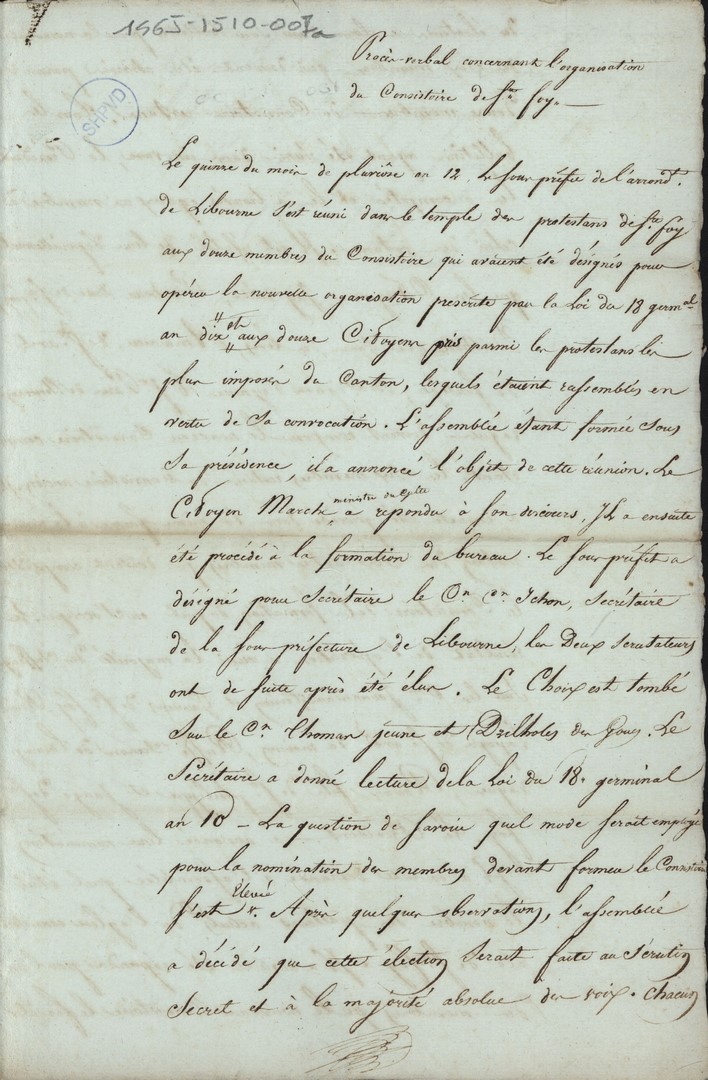 1965-1510-007a
SHPVD
Procès-verbal concernant l'organisation
du Consistoire de Ste foy.
Le quinze du mois de pluviôse an 12, le sous préfet de l'arrondt.
de Libourne s'est réuni dans le temple des protestans de Ste foy
aux douze membres du Consistoire qui avaient été désignés pour
opérer la nouvelle organisation prescrite par la Loi du 18 germal
an dix et aux douze Citoyens pris parmi les protestans les
plus imposés du Canton, lesquels étaient rassemblés en
vertu de sa convocation. L'assemblée étant formée sous
sa présidence, il a annoncé l'objet de cette réunion. Le
Citoyen Marche ministre du Culte a repondu à son discours, Il a ensuite
été procédé à la formation du bureau. Le sous préfet a
désigné pour Secrétaire le Cn. Ichon, Secrétaire
de la sous-préfecture de Libourne, les Deux scrutateurs
ont de suite après été élus. Le Choix est tombé
sur le Cn. Thomas jeune et Drilholes des Gous. Le
Secrétaire a donné lecture de la Loi du 18 germinal
an 10 - La question de savoir quel mode serait employé
pour la nomination des membres devant former le Consistoire
s'est élevée. Après quelques observations, l'assemblée
a décidé que cette élection serait faite au scrutin
secret et à la majorité absolue des voix. Chacun